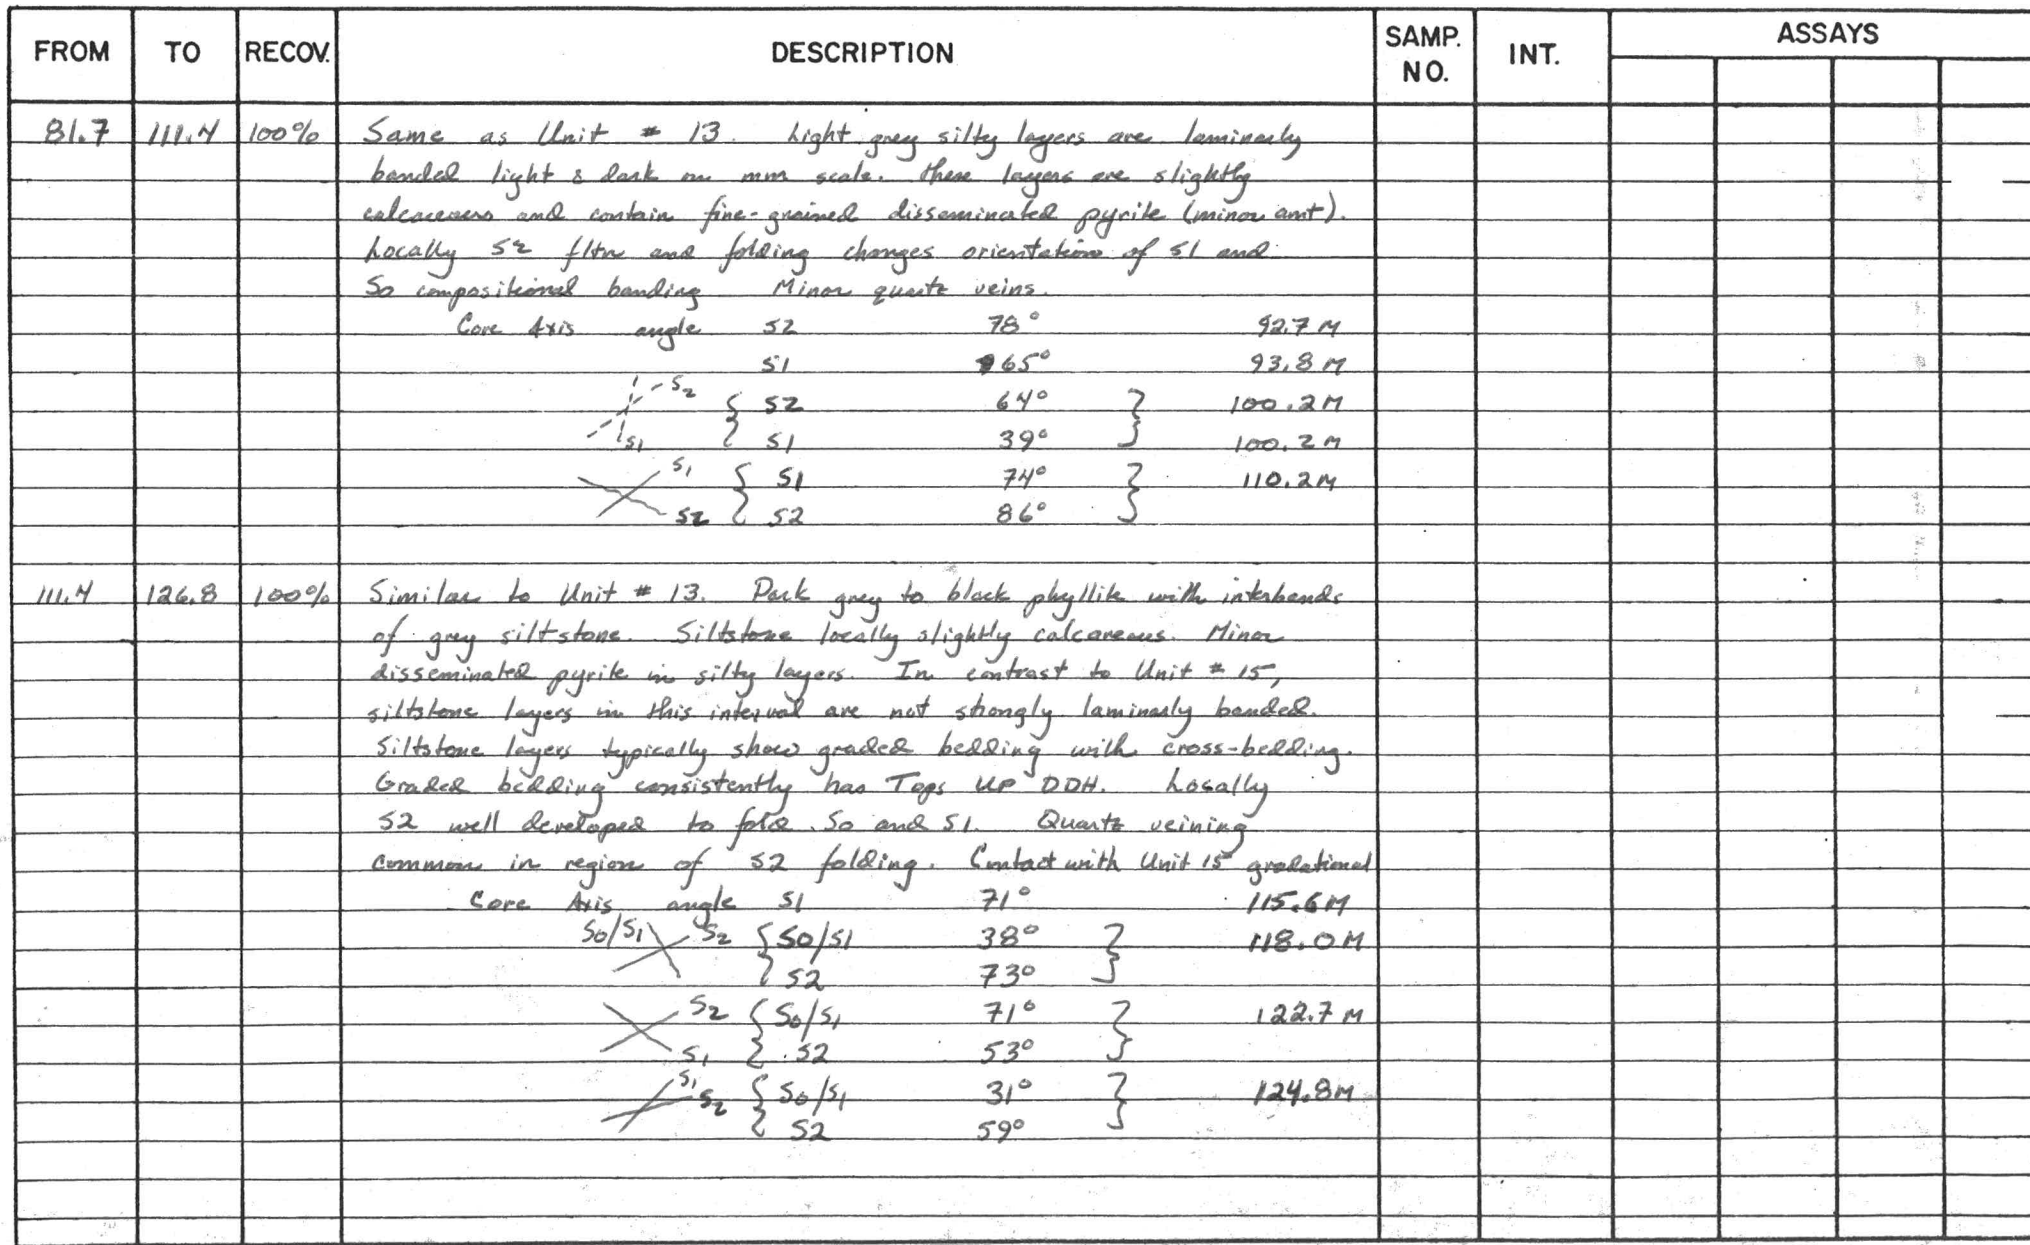 FROM TO RECOV. DESCRIPTION SAMP. NO. INT. ASSAYS
81.7 111.4 100% Same as Unit # 13. Light grey silty layers are laminarly
banded light & dark on mm scale. These layers are slightly
calcareous and contain fine-grained disseminated pyrite (minor amt).
Locally S2 fltn and folding changes orientation of S1 and
So compositional banding Minor quartz veins.
Core Axis angle S2 78° 92.7 M
S1 65° 93.8 M
S2 { S2 64° } 100.2 M
S1 { S1 39° } 100.2 M
S1 { S1 74° } 110.2 M
S2 { S2 86° }
111.4 126.8 100% Similar to Unit # 13. Dark grey to black phyllite with interbands
of grey siltstone. Siltstone locally slightly calcareous. Minor
disseminated pyrite in silty layers. In contrast to Unit # 15,
siltstone layers in this interval are not strongly laminarly banded.
Siltstone layers typically show graded bedding with cross-bedding.
Graded bedding consistently has Tops UP DDH. Locally
S2 well developed to fold So and S1. Quartz veining
common in region of S2 folding. Contact with Unit 15 gradational
Core Axis angle S1 71° 115.6 M
So/S1 S2 { SO/S1 38° } 118.0 M
{ S2 73° }
S2 { So/S1 71° } 122.7 M
S1 { S2 53° }
S1 S2 { So/S1 31° } 124.8 M
{ S2 59° }